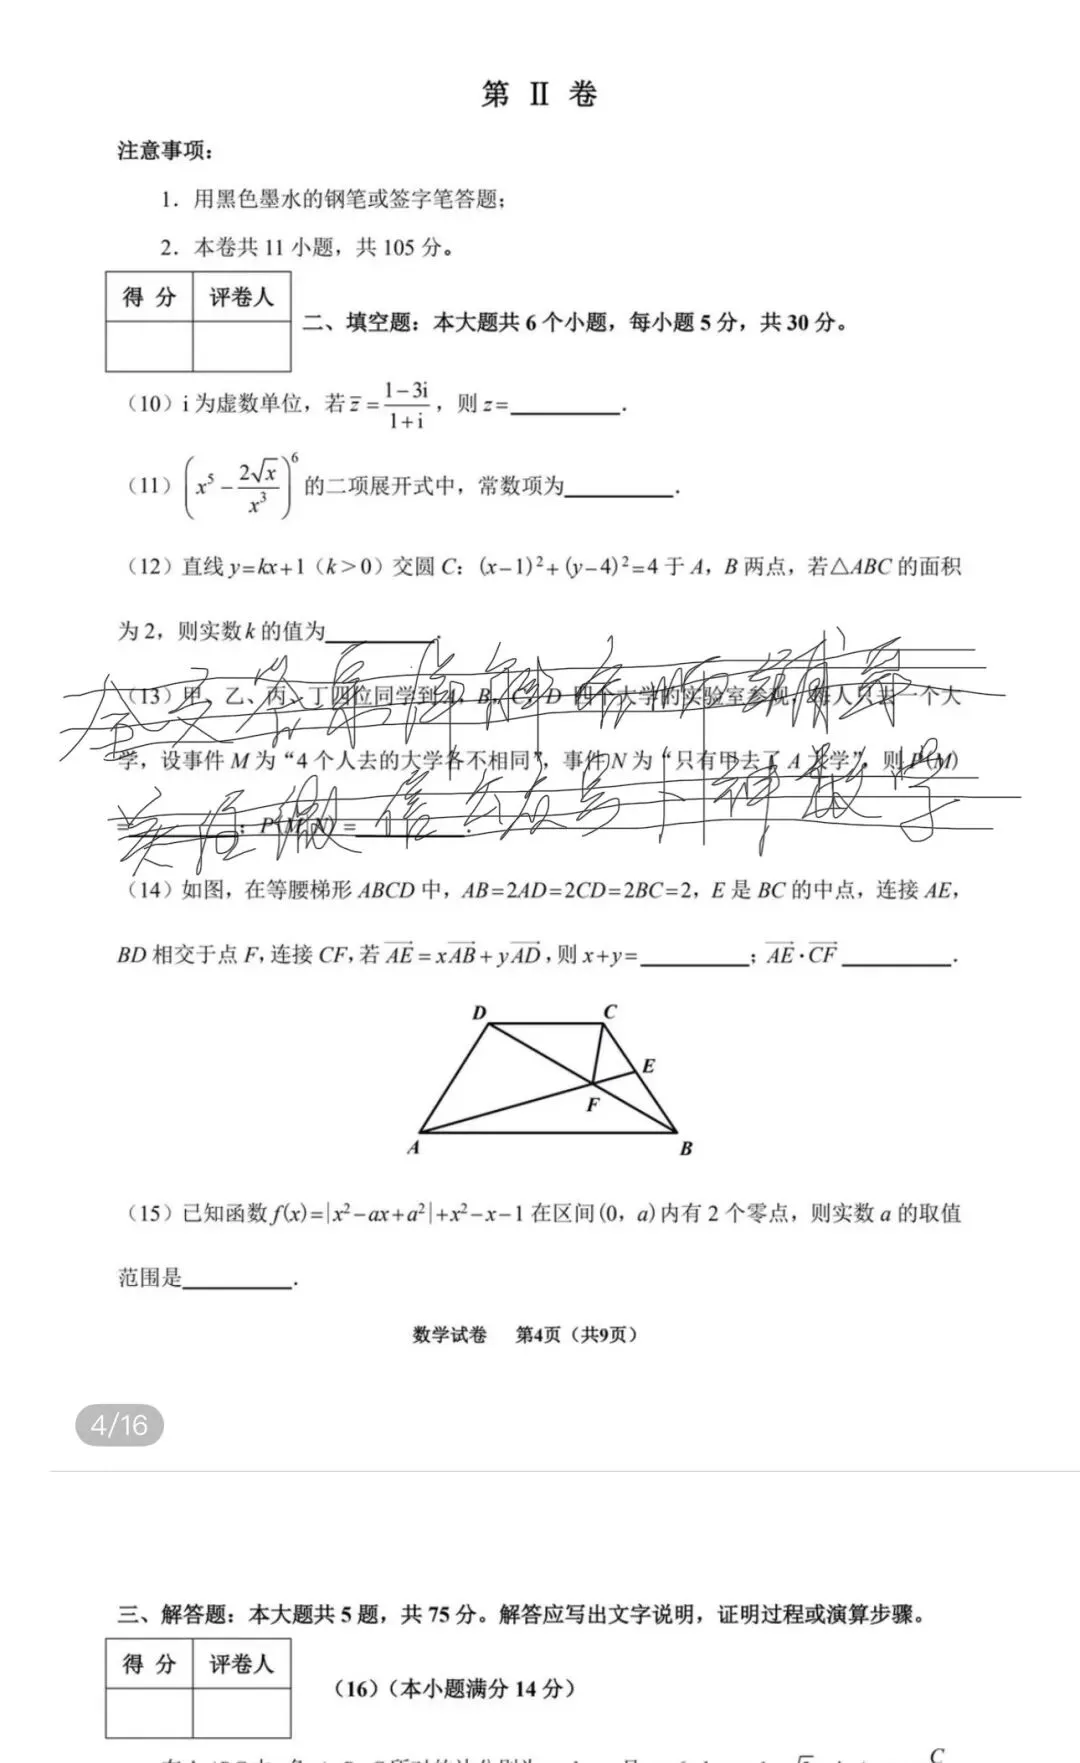 第 Ⅱ 卷
注意事项：
1．用黑色墨水的钢笔或签字笔答题；
2．本卷共 11 小题，共 105 分。
得 分 评卷人
二、填空题：本大题共 6 个小题，每小题 5 分，共 30 分。
（10）i 为虚数单位，若 z̅ = (1−3i)/(1+i)，则 z=__________．
（11）(x⁵ − 2√x/x³)⁶ 的二项展开式中，常数项为__________．
（12）直线 y=kx+1（k＞0）交圆 C：(x−1)²+(y−4)²=4 于 A，B 两点，若△ABC 的面积
为 2，则实数 k 的值为__________．
全文答案详解名师辅导
（13）甲、乙、丙、丁四位同学到 A，B，C，D 四个大学的实验室参观，每人只去一个大
学，设事件 M 为“4 个人去的大学各不相同”，事件 N 为“只有甲去了 A 大学”，则 P(M)
=__________；P(M|N) =__________．
微信公众号 神数学
（14）如图，在等腰梯形 ABCD 中，AB=2AD=2CD=2BC=2，E 是 BC 的中点，连接 AE，
BD 相交于点 F，连接 CF，若 AE→ = xAB→ + yAD→，则 x+y=__________；AE→·CF→ __________．
D C
E
F
A B
（15）已知函数 f(x)=|x²−ax+a²|+x²−x−1 在区间(0，a)内有 2 个零点，则实数 a 的取值
范围是__________．
数学试卷 第4页（共9页）
4/16
三、解答题：本大题共 5 题，共 75 分。解答应写出文字说明，证明过程或演算步骤。
得 分 评卷人
（16）（本小题满分 14 分）